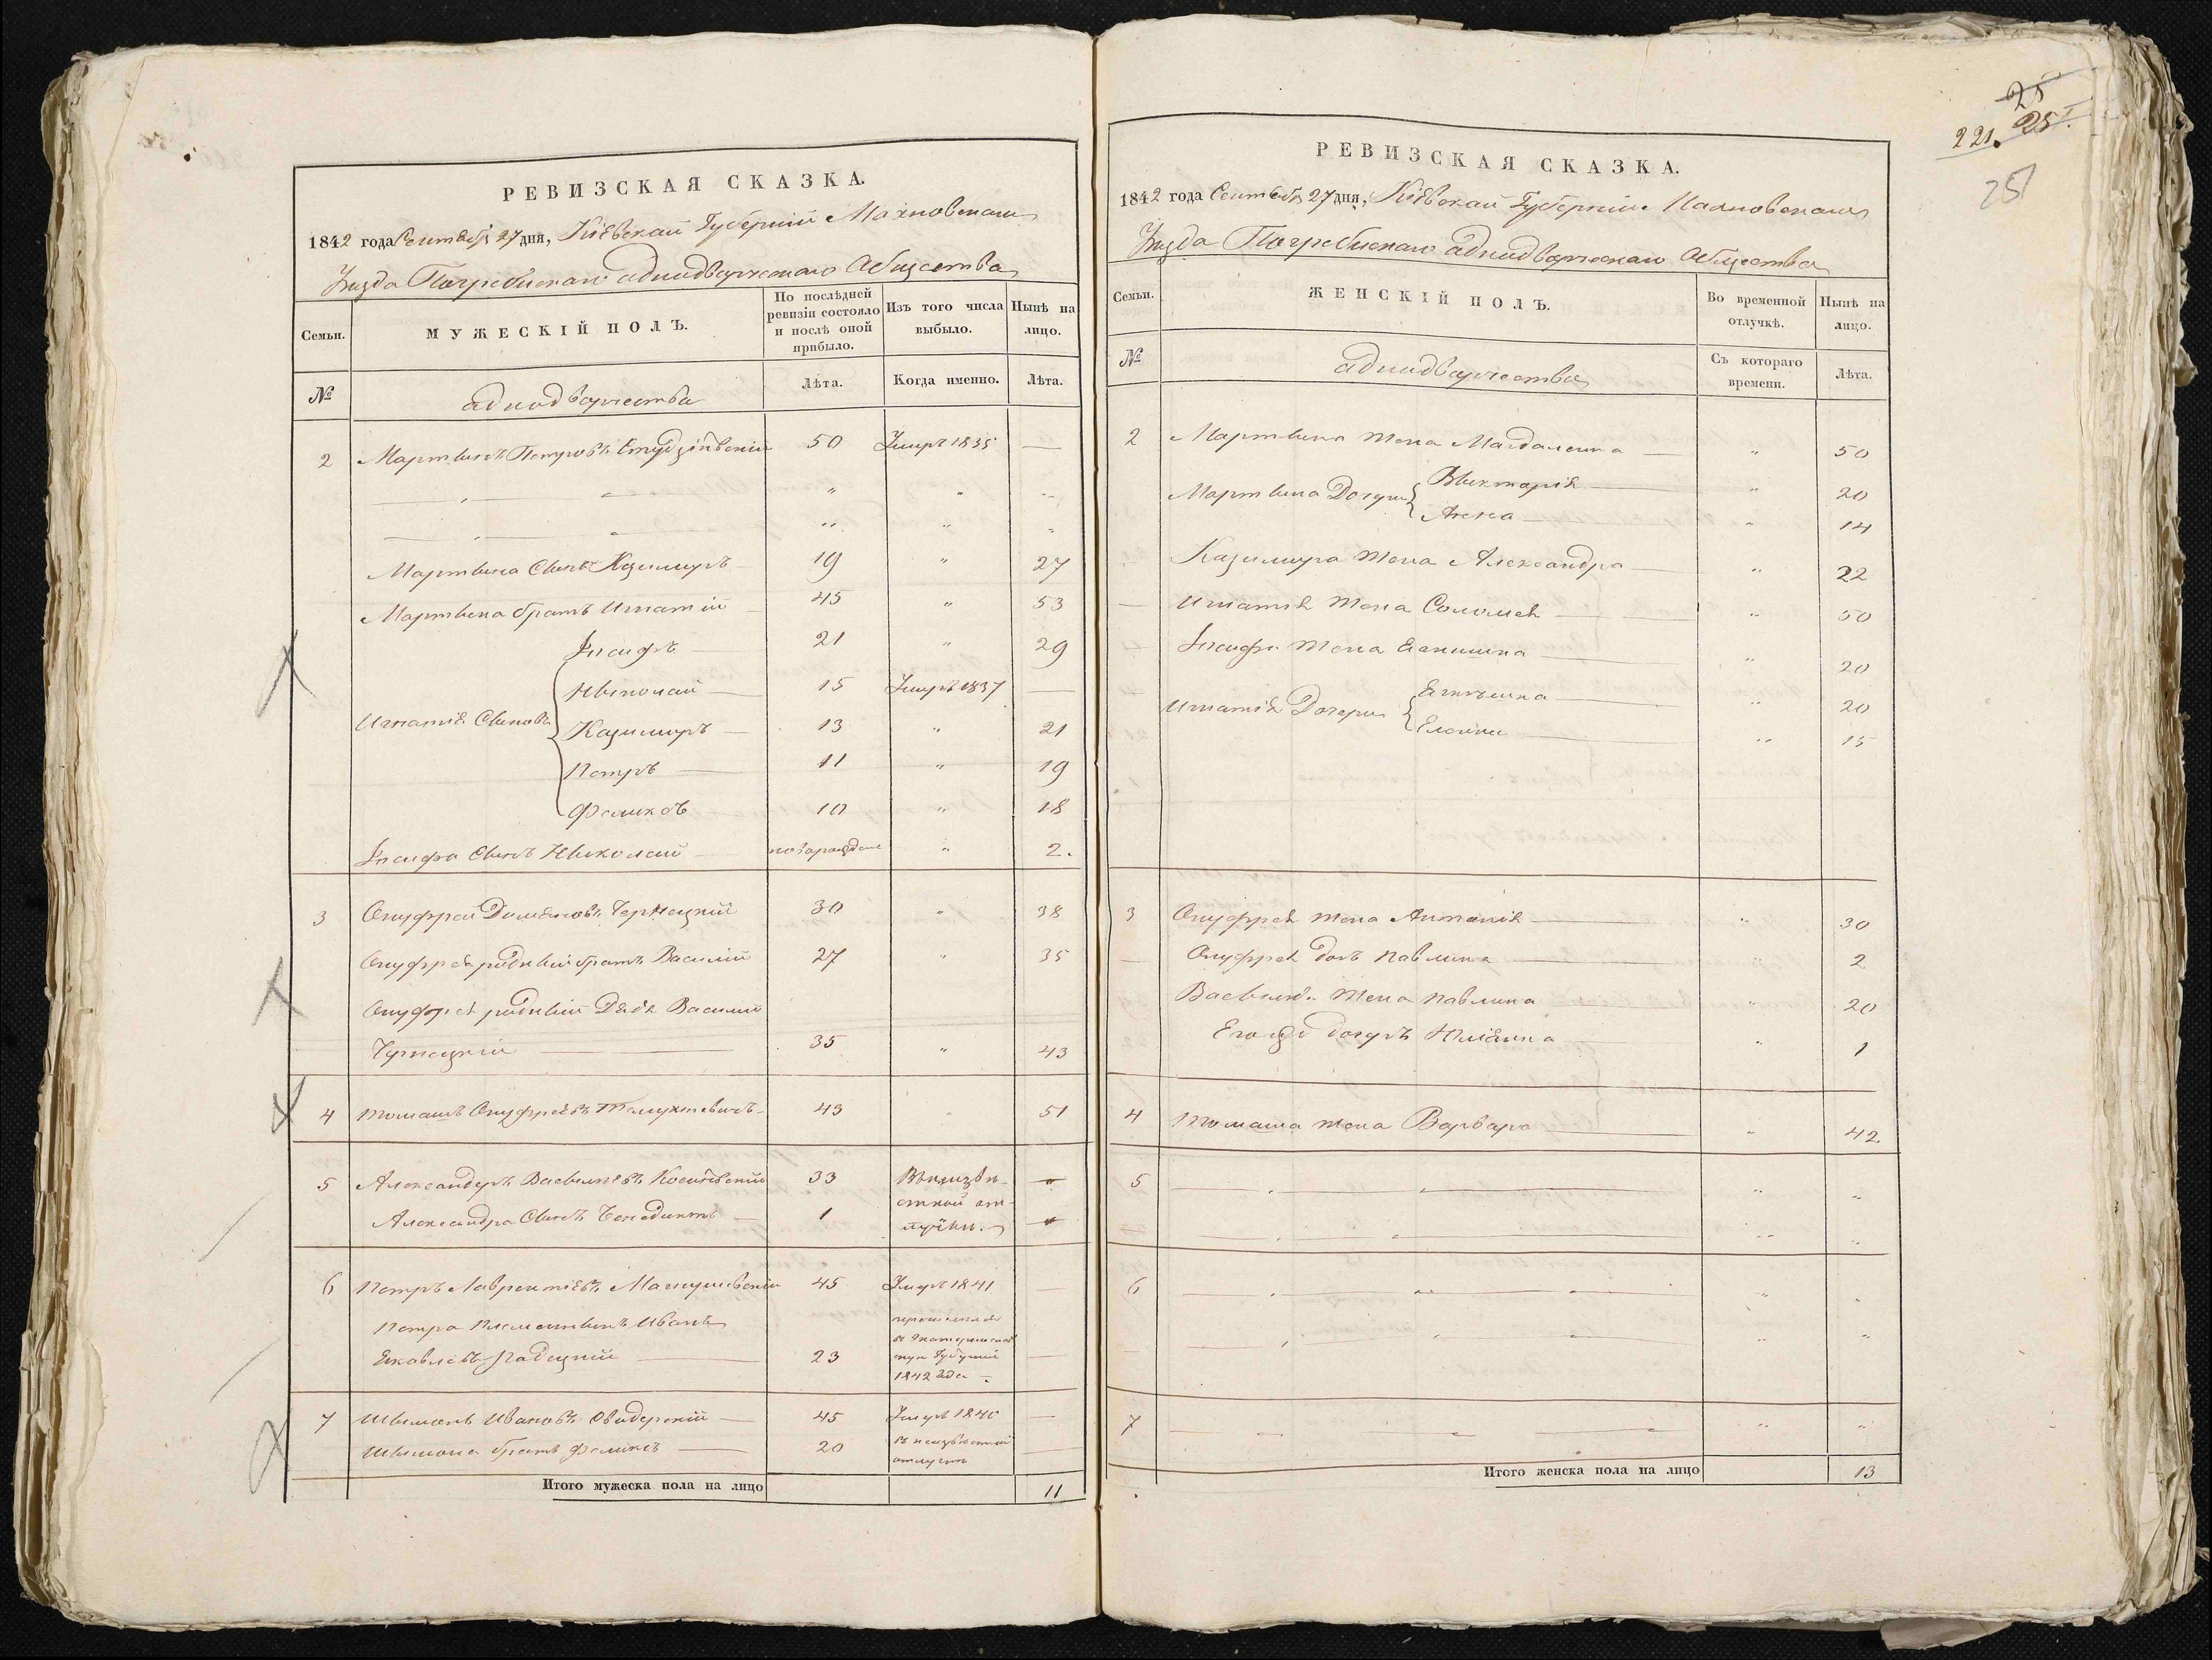 РЕВИЗСКАЯ СКАЗКА.
1842 года Сентября 27 дня, Кіевской Губерніи Махновскаго
Уезда Погребискаго аднодворческаго Абщества
Семьи.
МУЖЕСКІЙ ПОЛЪ.
По послѣдней ревизіи состояло и послѣ оной прибыло.
Изъ того числа выбыло.
Нынѣ на лицо.
№
аднодворчества
Лѣта.
Когда именно.
Лѣта.
2 Мартинъ Петровъ 50 Умръ 1835 —
Мартина Сынъ Казимиръ 19 " 27
Мартина братъ Игнатій 45 " 53
Іосифъ 21 " 29
Николай 15 Умръ 1837 —
Игнатія Сыновья
Казимиръ 13 " 21
Петръ 11 " 19
Феликсъ 10 " 18
Іосифа Сынъ Николай " 2.
3 Онуфрей Чернецкій 30 " 38
Онуфрея родный братъ Василій 27 " 35
Онуфрея родный Дядя Василий
Чернецкій 35 " 43
4 Томашъ Онуфріевъ 43 " 51
5 Александръ Васильевъ 33 —
Александра Сынъ Бенедиктъ 1 —
6 Петръ Лаврентіевъ 45 Умръ 1841 —
Петра Племянникъ Иванъ
Яковлевъ 23 1842 года —
7 Шимонъ Ивановъ Свидерскій 45 Умръ 1840 —
Шимона братъ Феликсъ 20 в неизвѣстной отлучкѣ —
Итого мужеска пола на лицо 11
221. 25
25
251
РЕВИЗСКАЯ СКАЗКА.
1842 года Сентября 27 дня, Кіевской Губерніи Махновскаго
Уезда Погребискаго аднодворческаго Абщества
Семьи.
ЖЕНСКІЙ ПОЛЪ.
Во временной отлучкѣ.
Нынѣ на лицо.
№
аднодворчества
Съ котораго времени.
Лѣта.
2 Мартина жена Магдалена " 50
Мартина Дочери
Викторія " 20
Анна " 14
Казимира жена Александра " 22
Игнатія жена Соломея " 50
Іосифа жена " 20
Игнатія Дочери
" 20
" 15
3 Онуфрея жена Антонія " 30
Онуфрея дочь Павлина " 2
Василія жена Павлина " 20
Его дочеръ " 1
4 Томаша жена Варвара " 42
5
6
7
Итого женска пола на лицо 13